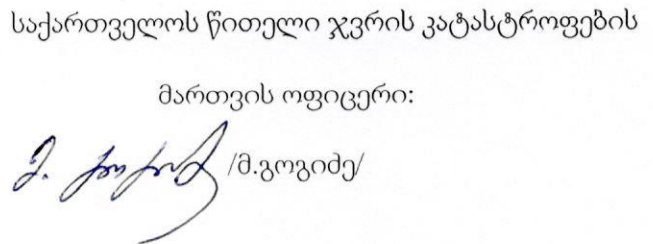 საქართველოს წითელი ჯვრის კატასტროფების
მართვის ოფიცერი:
/მ.გოგიძე/